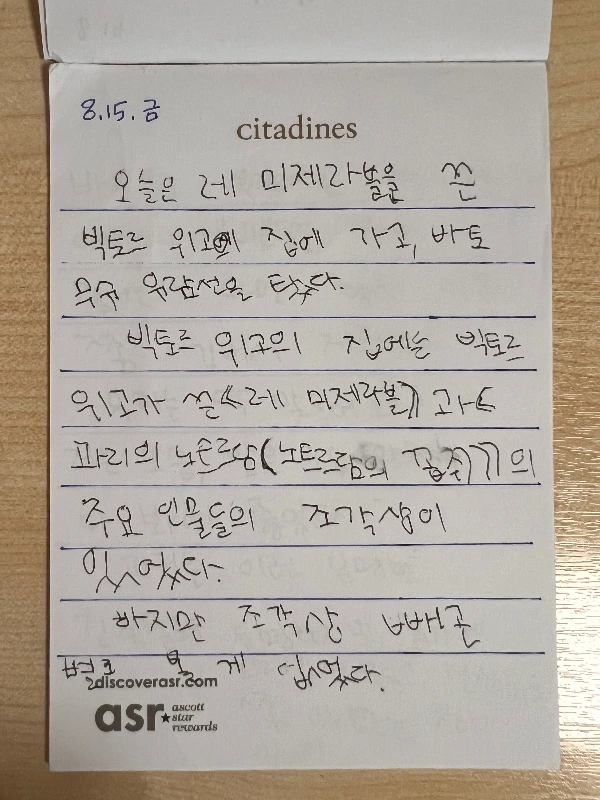 8.15.금
citadines
오늘은 레 미제라블을 쓴
빅토르 위고의 집에 가고, 바토
무슈 유람선을 탔다.
빅토르 위고의 집에는 빅토르
위고가 쓴 《레 미제라블》과 《
파리의 노트르담(노트르담의 꼽추)》의
주요 인물들의 조각상이
있었다.
하지만 조각상 빼곤
별로 볼 게 없었다.
discoverasr.com
asr ascott star rewards